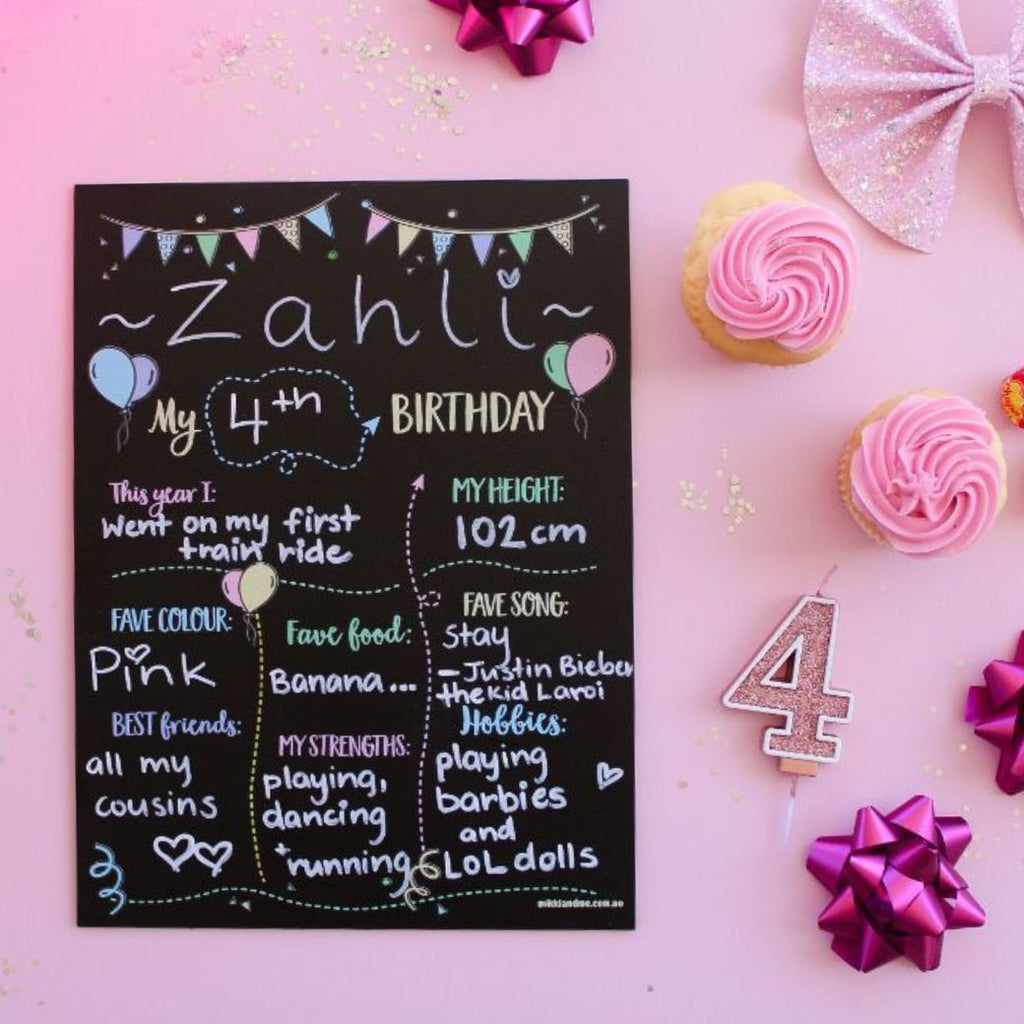 ~Zahli~
My 4th BIRTHDAY
This year I:
Went on my first
train ride
MY HEIGHT:
102cm
FAVE COLOUR:
Pink
Fave food:
Banana...
FAVE SONG:
Stay
-Justin Bieber
thekid Laroi
BEST friends:
all my
cousins
MY STRENGTHS:
playing,
dancing
+running
Hobbies:
playing
barbies
and
LOL dolls
mikkiandme.com.au
4